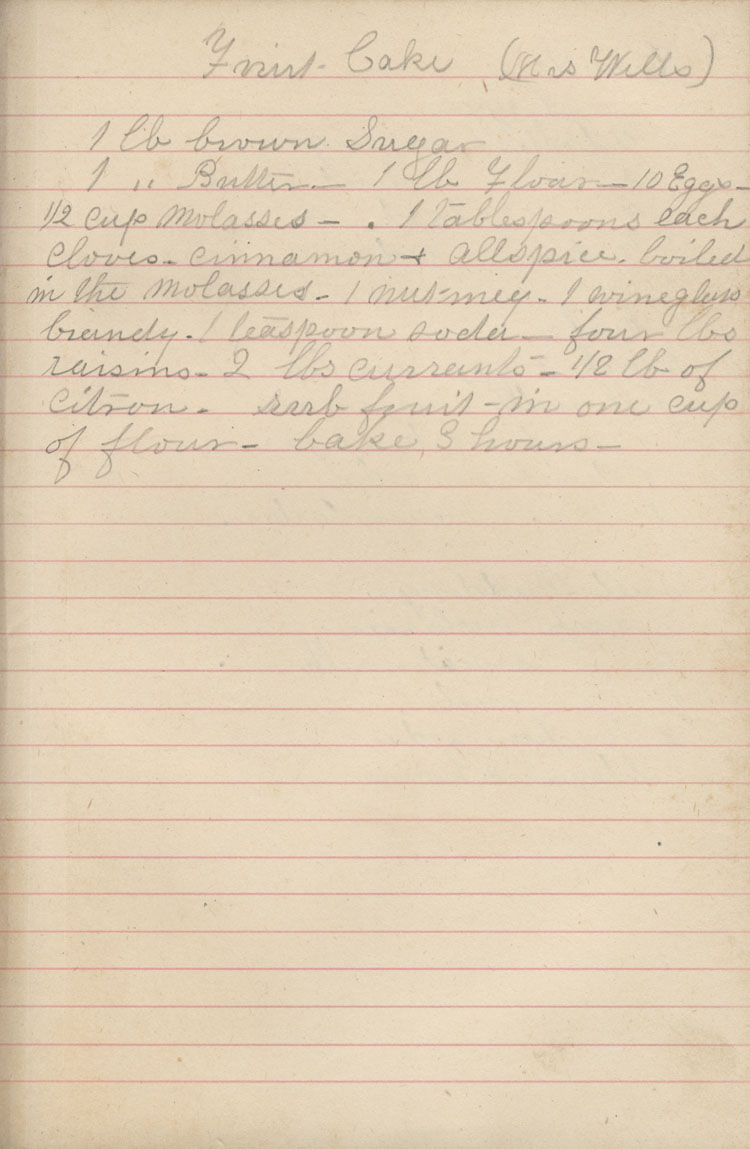 Fruit-Cake (Mrs Wells)
1 lb brown Sugar
1 " Butter- 1 lb Flour- 10 Eggs-
1/2 cup Molasses - . 1 tablespoons each
cloves- cinnamon + allspice. boiled
in the molasses - 1 nutmeg - 1 wineglass
brandy. 1 teaspoon soda - four lbs
raisins - 2 lbs currants - 1/2 lb of
citron. rub fruit - in one cup
of flour - bake 3 hours -